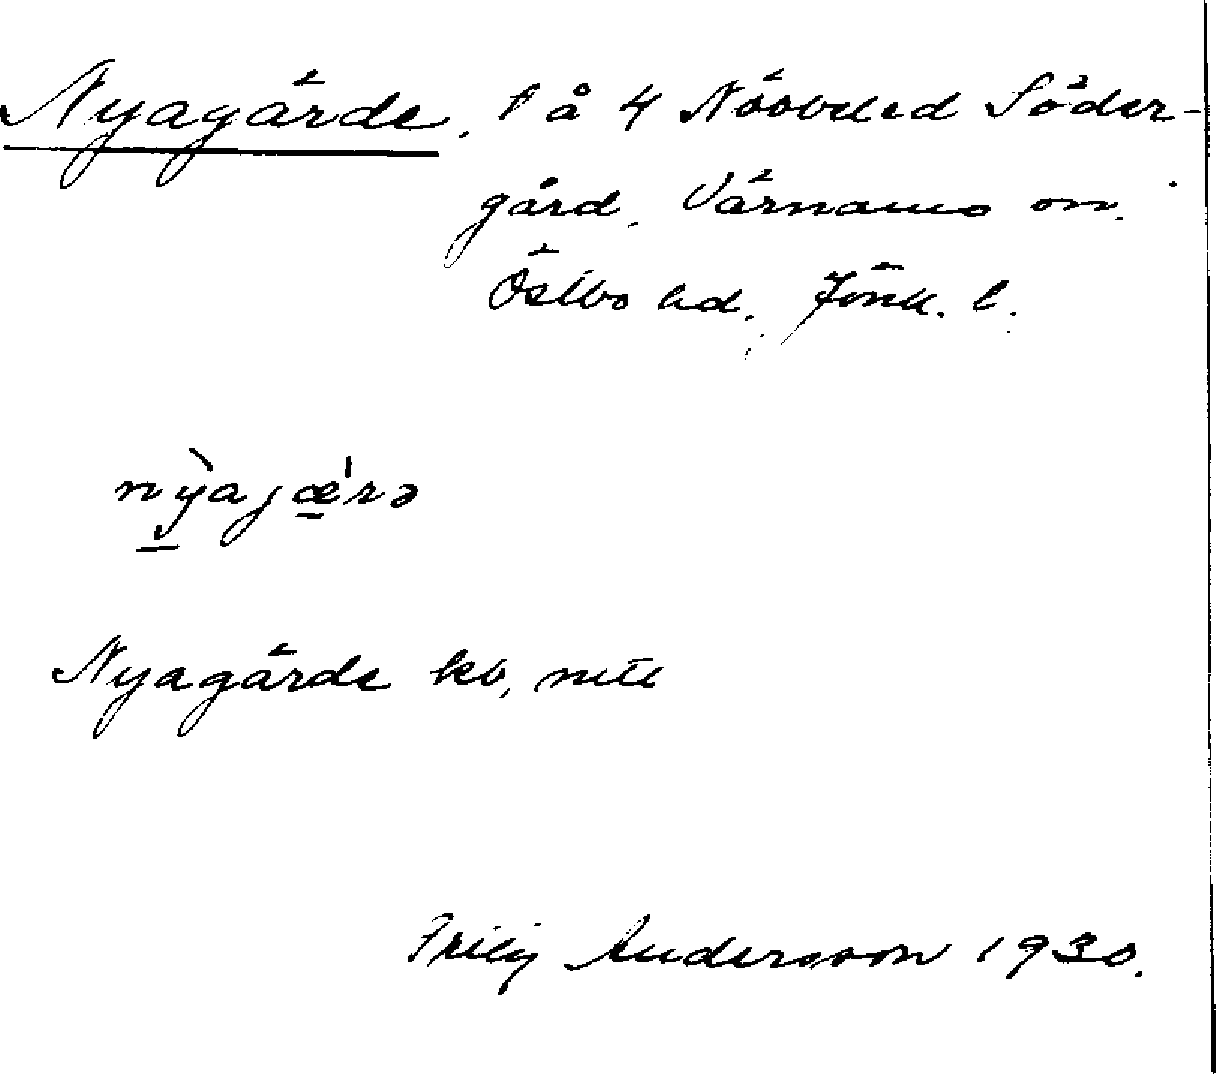 Nyagärde, t å 4 Nöbbeled Söder-
gård, Värnamo sn.
Östbo hd, Jönk. l.
nỳajæ̱'rə
Nyagärde kb,
Andersson 1930.